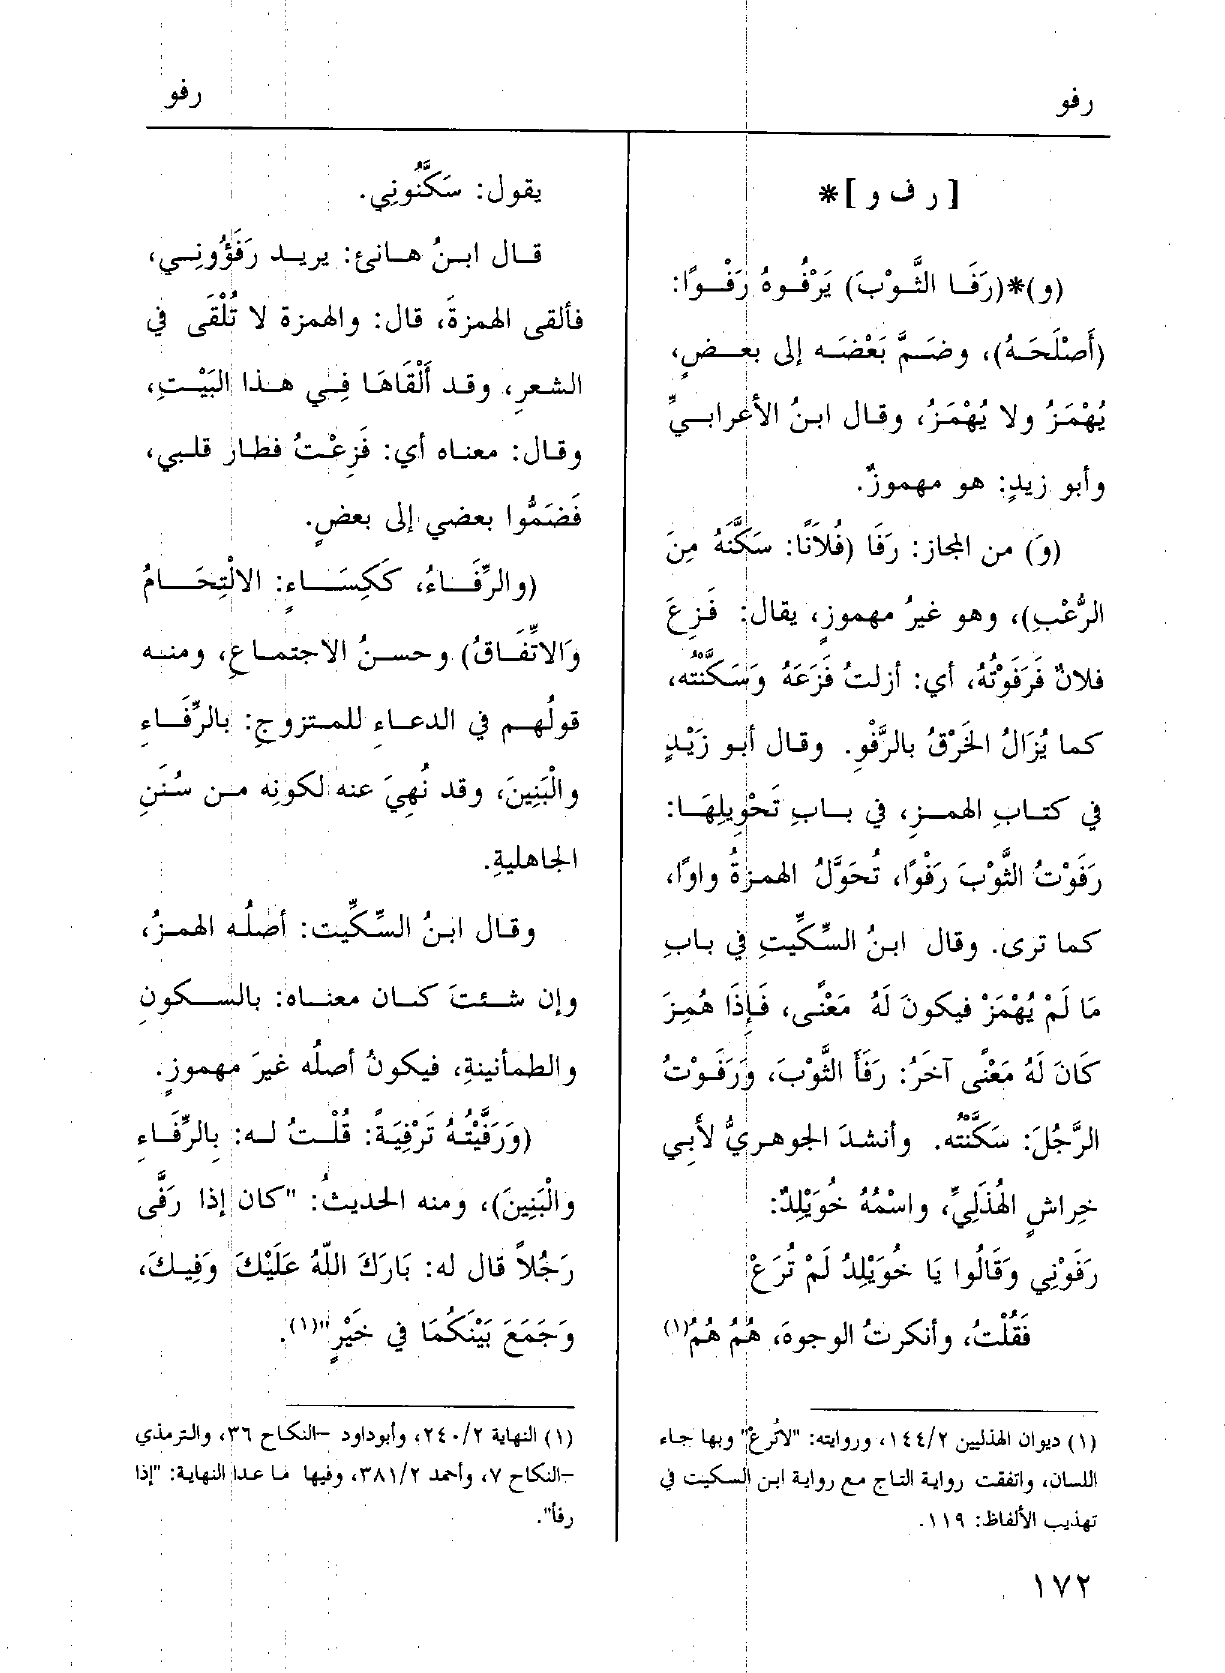 رفو
رفو
[ ر ف و ]*
(و)*(رَفَا الثَّوْبَ) يَرْفُوهُ رَفْوًا:
(أَصْلَحَهُ)، وضَمَّ بَعْضَه إلى بعضٍ،
يُهْمَزُ ولا يُهْمَزُ، وقال ابنُ الأعْرابيِّ
وأبو زيدٍ: هو مهموزٌ.
(وَ) من المجاز: رَفَا (فُلاَنًا: سَكَّنَهُ مِنَ
الرُّعْبِ)، وهو غيرُ مهموزٍ، يقال: فَزِعَ
فلانٌ فَرَفَوْتُهُ، أي: أزلتُ فَزَعَهُ وَسَكَّنْتُه،
كما يُزَالُ الخَرْقُ بالرَّفْوِ. وقال أبو زَيْدٍ
في كتابِ الهمزِ، في بابِ تَحْوِيلِهَا:
رَفَوْتُ الثَّوْبَ رَفْوًا، تُحَوَّلُ الهمزةُ واوًا،
كما ترى. وقال ابنُ السِّكِّيتِ في بابِ
مَا لَمْ يُهْمَزْ فيكونَ لَهُ مَعْنًى، فَإِذَا هُمِزَ
كَانَ لَهُ مَعْنًى آخَرُ: رَفَأَ الثَّوْبَ، وَرَفَوْتُ
الرَّجُلَ: سَكَّنْتُه. وأنشدَ الجوهريُّ لأَبِي
خِراشٍ الهُذَلِيِّ، واسْمُهُ خُوَيْلِدٌ:
رَفَوْنِي وَقَالُوا يَا خُوَيْلِدُ لَمْ تُرَعْ
فَقُلْتُ، وأنكرتُ الوجوهَ، هُمُ هُمُ(١)
(١) ديوان الهذليين ١٤٤/٢، وروايته: "لاتُرعْ" وبها جاء
اللسان، واتفقت رواية التاج مع رواية ابن السكيت في
تهذيب الألفاظ: ١١٩.
يقول: سَكَّنُونِي.
قال ابنُ هانئ: يريد رَفَؤُونِي،
فألقى الهمزةَ، قال: والهمزة لا تُلْقَى في
الشعرِ، وقد أَلْقَاهَا فِي هذا البَيْتِ،
وقال: معناه أي: فَزِعْتُ فطار قلبي،
فَضَمُّوا بعضي إلى بعضٍ.
(والرِّفَاءُ، كَكِسَاءٍ: الالْتِحَامُ
وَالاتِّفَاقُ) وحسنُ الاجتماعِ، ومنه
قولُهم في الدعاءِ للمتزوجِ: بالرِّفَاءِ
والْبَنِينَ، وقد نُهِيَ عنه لكونِه من سُنَنِ
الجاهليةِ.
وقال ابنُ السِّكِّيت: أصلُه الهمزُ،
وإن شئتَ كان معناه: بالسكونِ
والطمأنينةِ، فيكونُ أصلُه غيرَ مهموزٍ.
(وَرَفَّيْتُهُ تَرْفِيَةً: قُلْتُ له: بِالرِّفَاءِ
والْبَنِينَ)، ومنه الحديثُ: "كان إذا رَفَّى
رَجُلاً قال له: بَارَكَ اللَّهُ عَلَيْكَ وَفِيكَ،
وَجَمَعَ بَيْنَكُمَا في خَيْرٍ"(١).
(١) النهاية ٢٤٠/٢، وأبوداود –النكاح ٣٦، والترمذي
–النكاح ٧، وأحمد ٣٨١/٢، وفيها ما عدا النهاية: "إذا
رفأ".
١٧٢